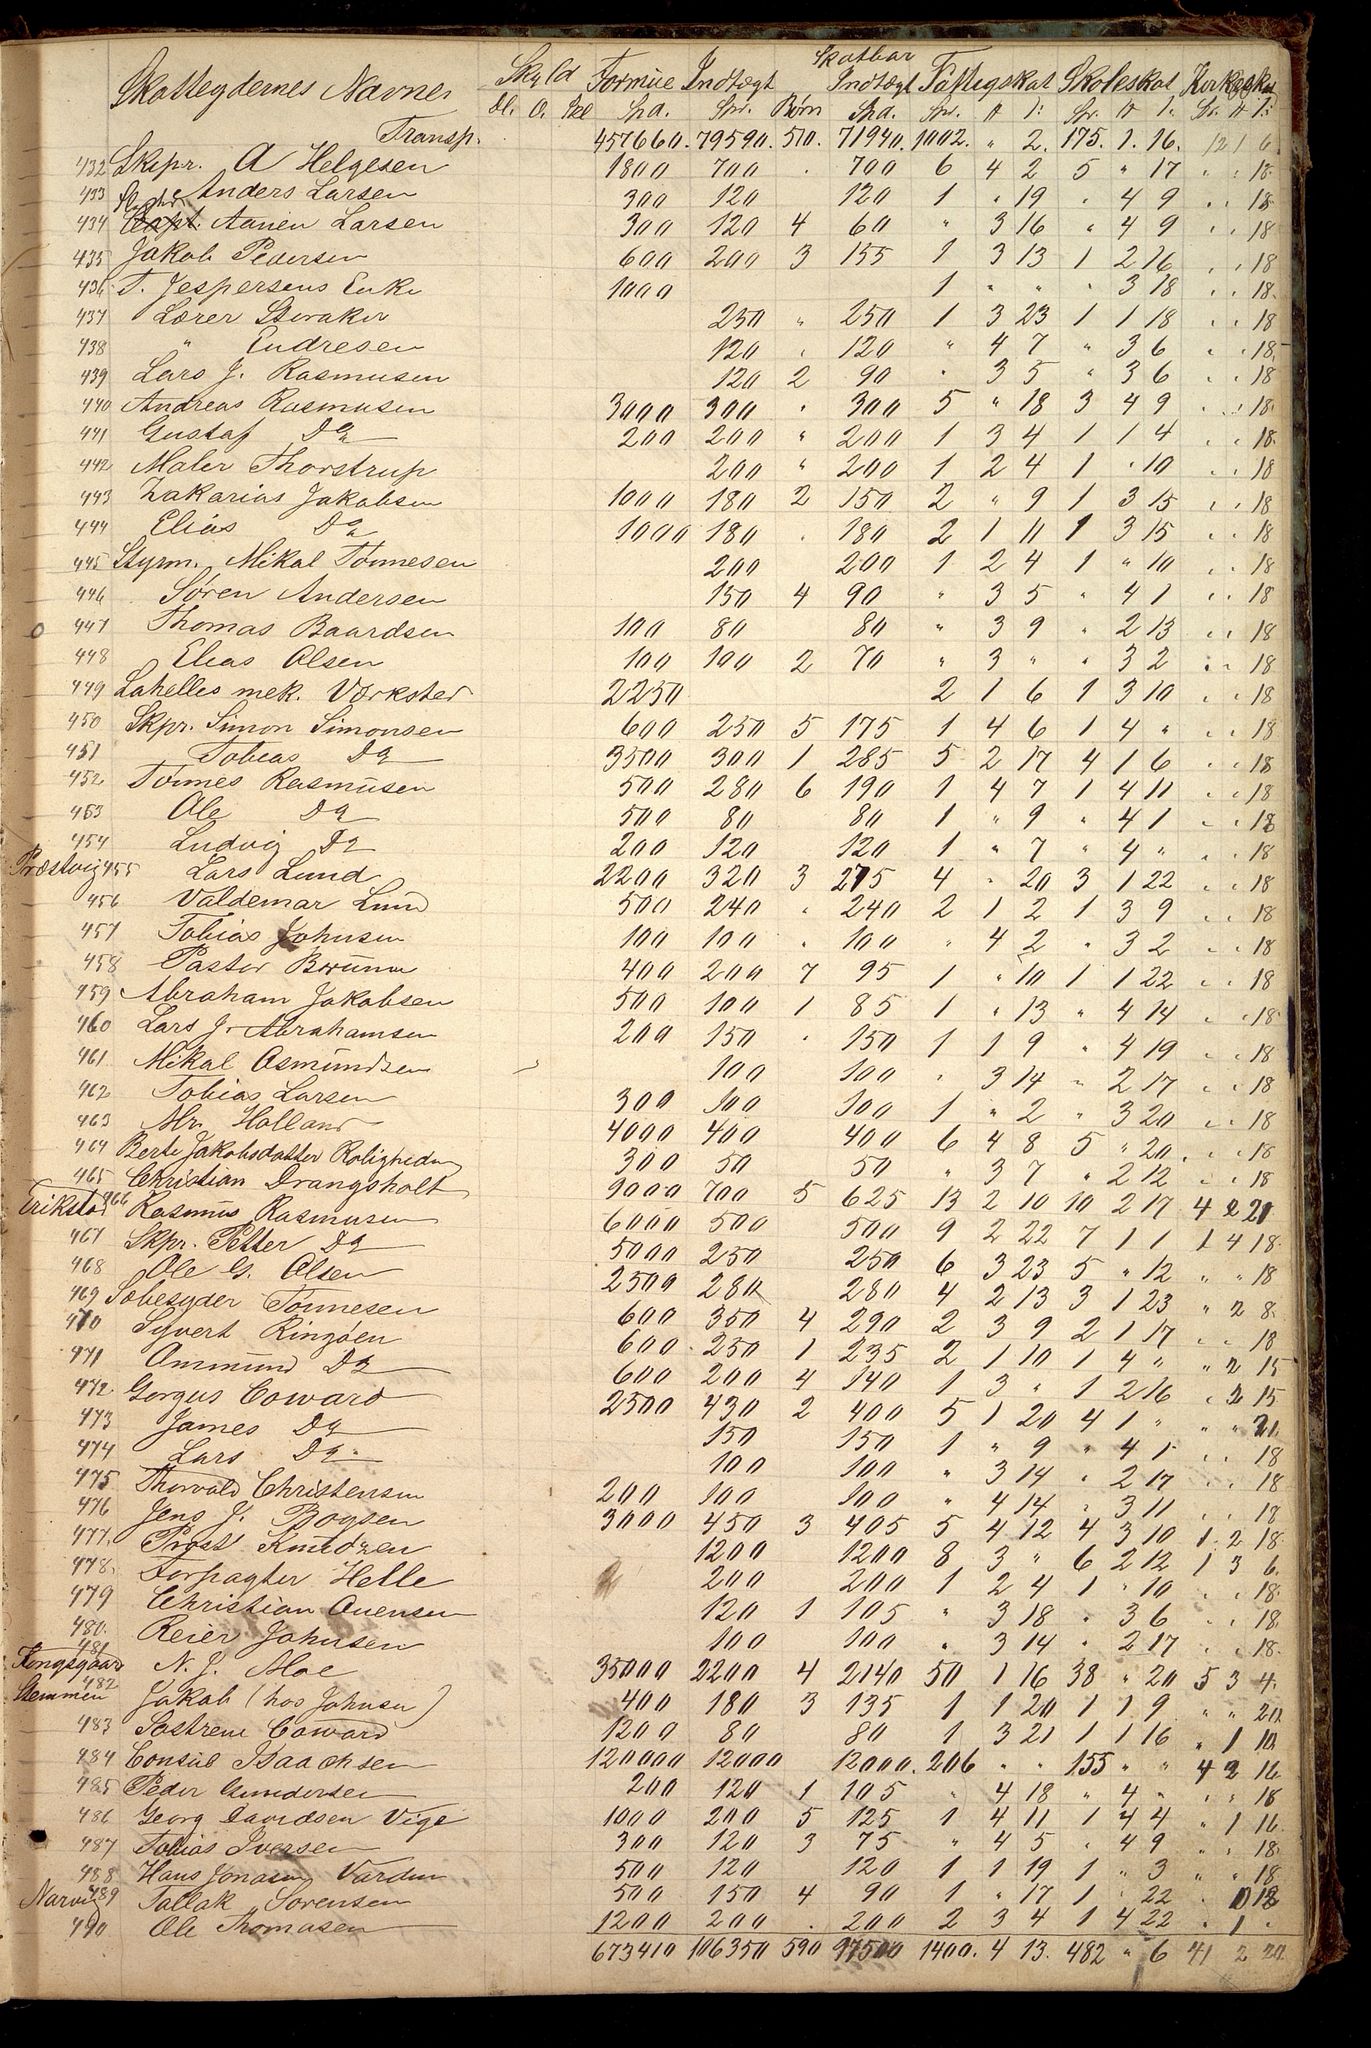 Skatteydernes Navne Skyld Formue Indtægt Skatbar Indtægt Fattigskat Skoleskat
Dl. O. Skl Spd. Spr. Børn Spd. Spr.
Transp. 457660. 79590. 510. 71940. 1002. " 2. 175. 1. 16. 12 1 6
432 Skipr. A Helgesen 1800 700 . 700 6 4 2 5 " 17 . . 18
433 Anders Larsen 300 120 120 1 " 19 . 4 9 . . 18
434 Aanen Larsen 300 120 4 60 " 3 16 " 4 9 . . 18
435 Jakob Pedersen 600 200 3 155 1 3 13 1 2 16 . . 18
436 T. Jespersens Enke 1000 1 " " . 3 18 . . 18
437 Lærer Steraker 250 " 250 1 3 23 1 1 18 . . 18
438 " Endresen 120 . 120 " 4 7 " 3 6 . . 18
439 Lars J. Rasmusen 120 2 90 . 3 5 " 3 6 . . 18
440 Andreas Rasmusen 3000 300 . 300 5 " 18 3 4 9 . . 18
441 Gustaf Do 200 200 " 200 1 3 4 1 1 4 . . 18
442 Maler Thorstrup 200 " 200 1 2 4 1 . 10 . . 18
443 Zakarias Jakobsen 1000 180 2 150 2 " 9 1 3 15 . . 18
444 Elias Do 1000 180 . 180 2 1 11 1 3 15 . . 18
445 Styrm. Mikal Tönnesen 200 200 1 2 4 1 " 10 . . 18
446 Søren Andersen 150 4 90 " 3 5 " 4 1 . . 18
447 Thomas Baardsen 100 80 80 " 3 9 . 2 13 . . 18
448 Elias Olsen 100 100 2 70 " 3 " " 3 2 . . 18
449 Lahelles mek. Værksted 2250 2 1 6 1 3 10 . . 18
450 Skpr. Simon Simonsen 600 250 5 175 1 4 6 1 4 " . . 18
451 Tobias Do 3500 300 1 285 5 2 17 4 1 6 . . 18
452 Tönnes Rasmusen 500 280 6 190 1 4 7 1 4 11 . . 18
453 Ole Do 500 80 80 1 " 9 " 4 1 . . 18
454 Ludvig Do 200 120 120 1 " 7 " 4 " . . 18
Præstvig 455 Lars Lund 2200 320 3 275 4 . 20 3 1 22 . . 18
456 Valdemar Lund 500 240 . 240 2 1 2 1 3 9 . . 18
457 Tobias Johnsen 100 100 . 100 " 4 2 " 3 2 . . 18
458 Pastor Bruun 400 200 7 95 1 " 10 1 1 22 . . 18
459 Abraham Jakobsen 500 100 1 85 1 " 13 " 4 14 . . 18
460 Lars J. Abrahamsen 200 150 . 150 1 1 9 " 4 19 . . 18
461 Mikal Osmundsen 100 100 . 3 14 " 2 17 . . 18
462 Tobias Larsen 300 100 100 1 " 2 " 3 20 . . 18
463 Mr. Holland 4000 400 400 6 4 8 5 " 20 . . 18
464 Berte Jakobsdatter Roligheden 300 50 50 " 3 7 " 2 12 . . 18
465 Christian Drangsholt 9000 700 5 625 13 2 10 10 2 17 4 2 21
Erikstad 466 Rasmus Rasmusen 6000 500 500 9 2 22 7 1 1 1 4 18
467 Skpr. Petter Do 5000 250 250 6 3 23 5 " 12 " " 18
468 Ole G. Olsen 2500 280 280 4 2 13 3 1 23 " 2 8
469 Sæbesyder Tönnesen 600 350 4 290 2 3 9 2 1 17 . . 18
470 Syvert Ringöen 600 250 1 235 2 1 10 1 4 " " 2 15
471 Ommund Do 600 200 4 140 1 3 " 1 2 16 . 2 15
472 Gorgus Coward 2500 430 2 400 5 1 20 4 1 " " " 21
473 James Do 150 150 1 " 9 " 4 1 . . 18
474 Lars Do 100 100 " 3 14 . 2 17 . . 18
475 Thorvald Christensen 200 100 100 " 4 14 . 3 11 . . 18
476 Jens J. Boysen 3000 450 3 405 5 4 12 4 3 10 1 2 18
477. Prost Knudzen 1200 1200 8 3 " 6 2 12 1 3 6
478. Forpagter Helle 200 200 1 2 4 1 " 10 . . 18
479 Christian Ouensen 120 1 105 " 3 18 " 3 6 . . 18
480. Reier Johnsen 100 100 " 3 14 " 2 17 . . 18
Kongsgaard 481 N. J. Moe 35000 2200 4 2140 50 1 16 38 " 20 5 3 4
Stemmen 482 Jakob (hos Johnsen) 400 180 3 135 1 1 20 1 1 9 " " 20
483 Coward 1200 80 80 1 3 21 1 1 16 " 1 10
484 Consul Isaachsen 120000 12000 12000. 206 " " 155 " " 4 2 16
485 Peder Gundersen 200 120 1 105 " 4 18 " 4 " " " 18
486 Georg Davidsen Vige 1000 200 5 125 1 4 11 1 4 4 " 1 16
487 Tobias Iversen 300 120 3 75 " 4 5 . 4 9 " " 18
488 Hans Jonasen Varden 500 120 120 1 1 19 1 " 3 " " 18
Narvig 489 Tallak Sorensen 500 150 4 90 1 " 17 1 " 22 . . 18
490 Ole Thomasen 1200 200 . 200 2 3 4 1 4 22 . 1 .
673410 106350 590 97500 1400. 4 13. 482 " 6 41 2 22